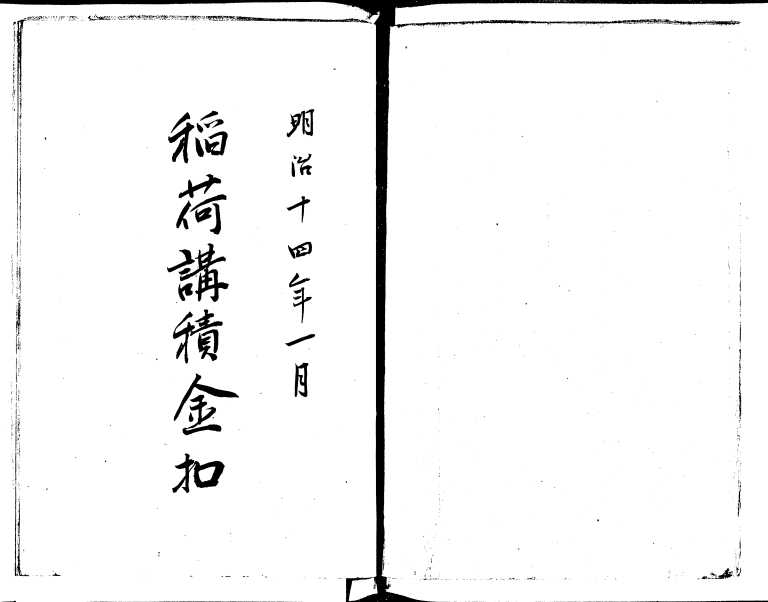 明治十四年一月
稲荷講積金扣